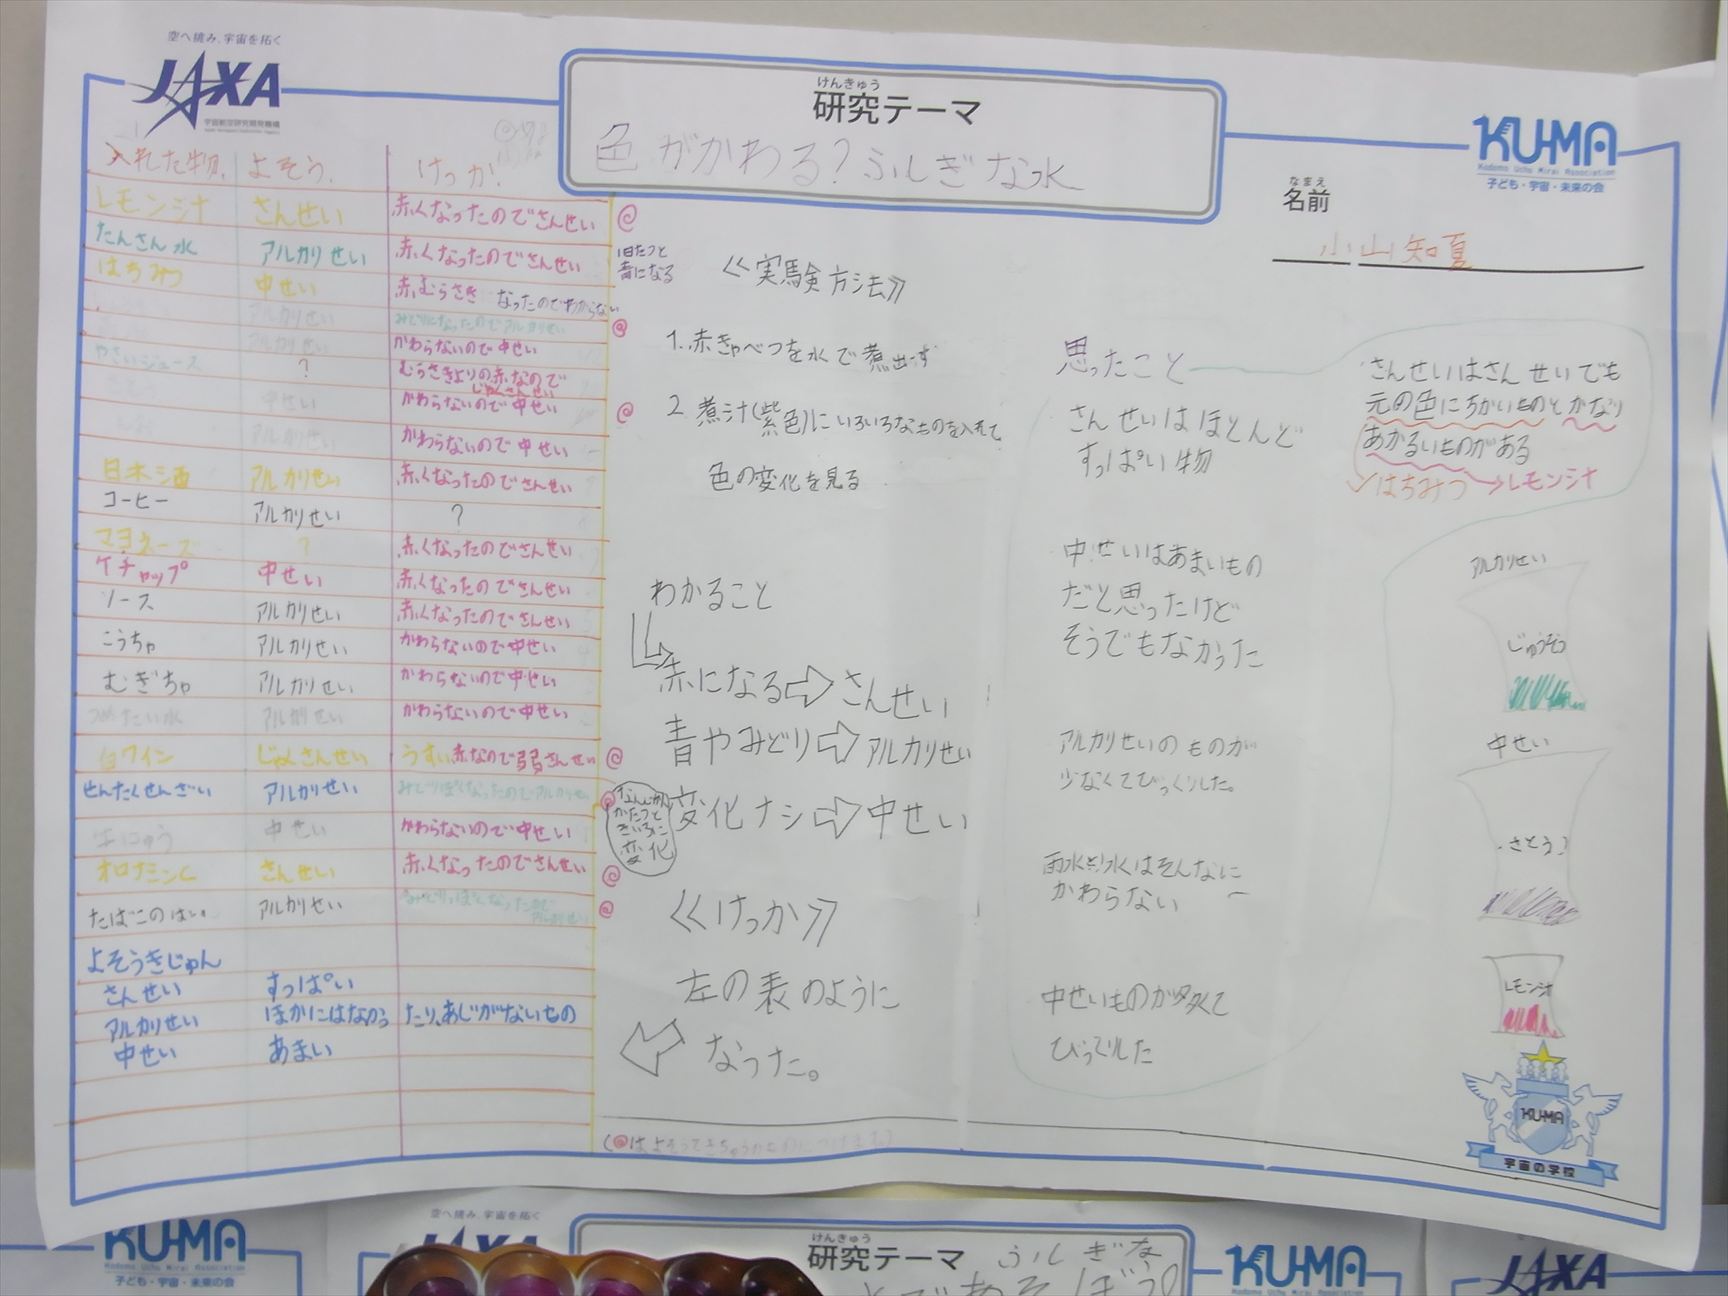 空へ挑み、宇宙を拓く
JAXA
宇宙航空研究開発機構
けんきゅう
研究テーマ
色がかわる?ふしぎな水
KU-MA
Kodomo Uchu Mirai Association
子ども・宇宙・未来の会
なまえ
名前
小山知夏
入れた物 よそう けっか
レモン汁 さんせい 赤くなったのでさんせい
たんさん水 アルカリせい 赤くなったのでさんせい
はちみつ 中せい 赤むらさき なったのでわからない
アルカリせい みどりになったのでアルカリせい
アルカリせい かわらないので中せい
やさいジュース ? むらさきよりの赤なので
じゃくさんせい
中せい かわらないので中せい
アルカリせい かわらないので中せい
日本酒 アルカリせい 赤くなったのでさんせい
コーヒー アルカリせい ?
マヨネーズ ? 赤くなったのでさんせい
ケチャップ 中せい 赤くなったのでさんせい
ソース アルカリせい 赤くなったのでさんせい
こうちゃ アルカリせい かわらないので中せい
むぎちゃ アルカリせい かわらないので中せい
つめたい水 アルカリせい かわらないので中せい
白ワイン じゃくさんせい うすい赤なので弱さんせい
せんたくせんざい アルカリせい みどりぽくなったのでアルカリせい
牛にゅう 中せい かわらないので中せい
オロナミンC さんせい 赤くなったのでさんせい
たばこのはい アルカリせい みどりっぽくなったので
アルカリせい
よそうきじゅん
さんせい すっぱい
アルカリせい ほかにはなかったり、あじがないもの
中せい あまい
1日たつと
青になる
≪実験方法≫
1. 赤きゃべつを水で煮出す
2. 煮汁(紫色)にいろいろなものを入れて
色の変化を見る
わかること
赤になる⇨さんせい
青やみどり⇨アルカリせい
変化ナシ⇨中せい
かたつと
きいろに
変化
≪けっか≫
左の表のように
なった。
思ったこと
さんせいはほとんど
すっぱい物
中せいはあまいもの
だと思ったけど
そうでもなかった
アルカリせいのものが
少なくてびっくりした。
かわらない
中せいものが多くて
びっくりした
さんせいはさんせいでも
元の色にちかいものとかなり
あかるいものがある
はちみつ レモン汁
アルカリせい
じゅうそう
中せい
さとう
レモン汁
KU-MA
宇宙の学校
KU-MA
Kodomo Uchu Mirai Association
子ども・宇宙・未来の会
空へ挑み、宇宙を拓く
JAXA
けんきゅう
研究テーマ
ふしぎな
KU-MA
Kodomo Uchu Mirai Association
子ども・宇宙・未来の会
JAXA